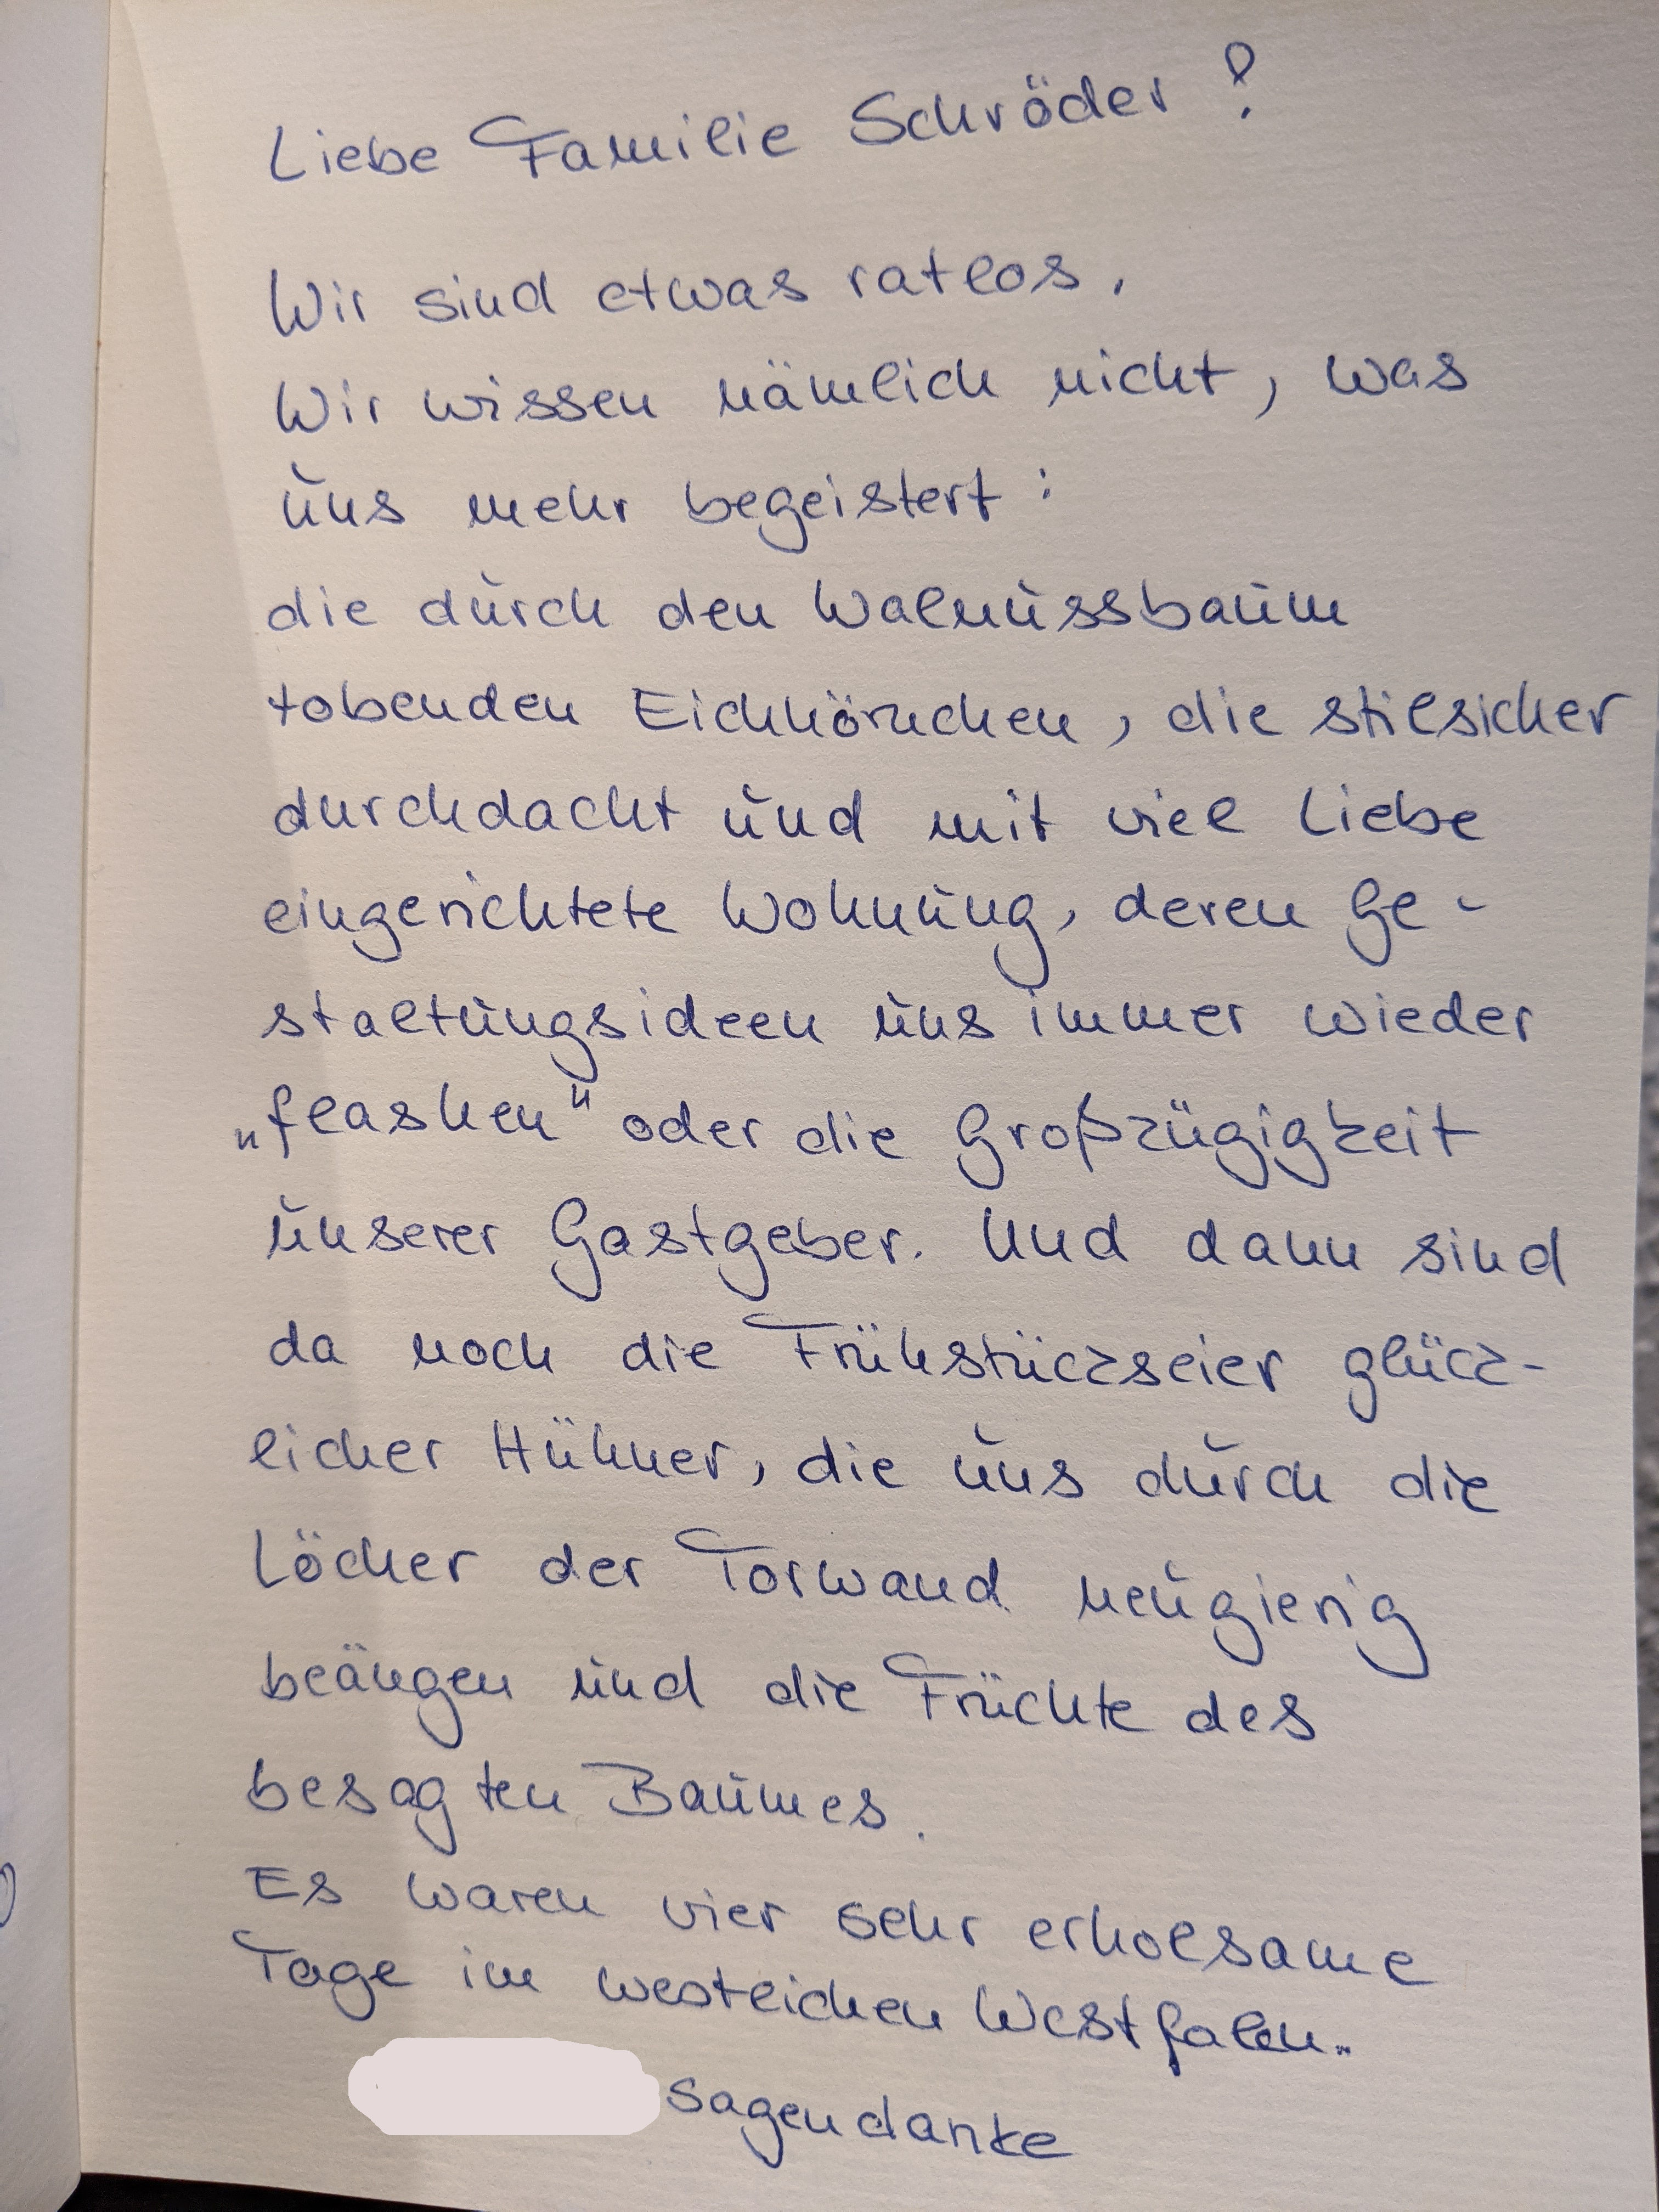 Liebe Familie Schröder!
Wir sind etwas ratlos.
Wir wissen nämlich nicht, was
uns mehr begeistert:
die durch den Walnussbaum
tobenden Eichhörnchen, die stilsicher
durchdacht und mit viel Liebe
eingerichtete Wohnung, deren Ge-
staltungsideen uns immer wieder
„flashen" oder die Großzügigkeit
unserer Gastgeber. Und dann sind
da noch die Frühstückseier glück-
licher Hühner, die uns durch die
Löcher der Torwand neugierig
beäugen und die Früchte des
besagten Baumes.
Es waren vier sehr erholsame
Tage im westlichen Westfalen.
sagen danke